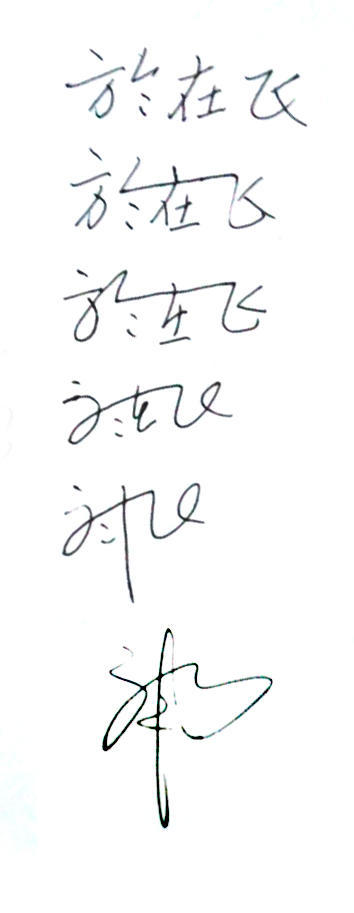 於在飞
於在飞
於在飞
於在飞